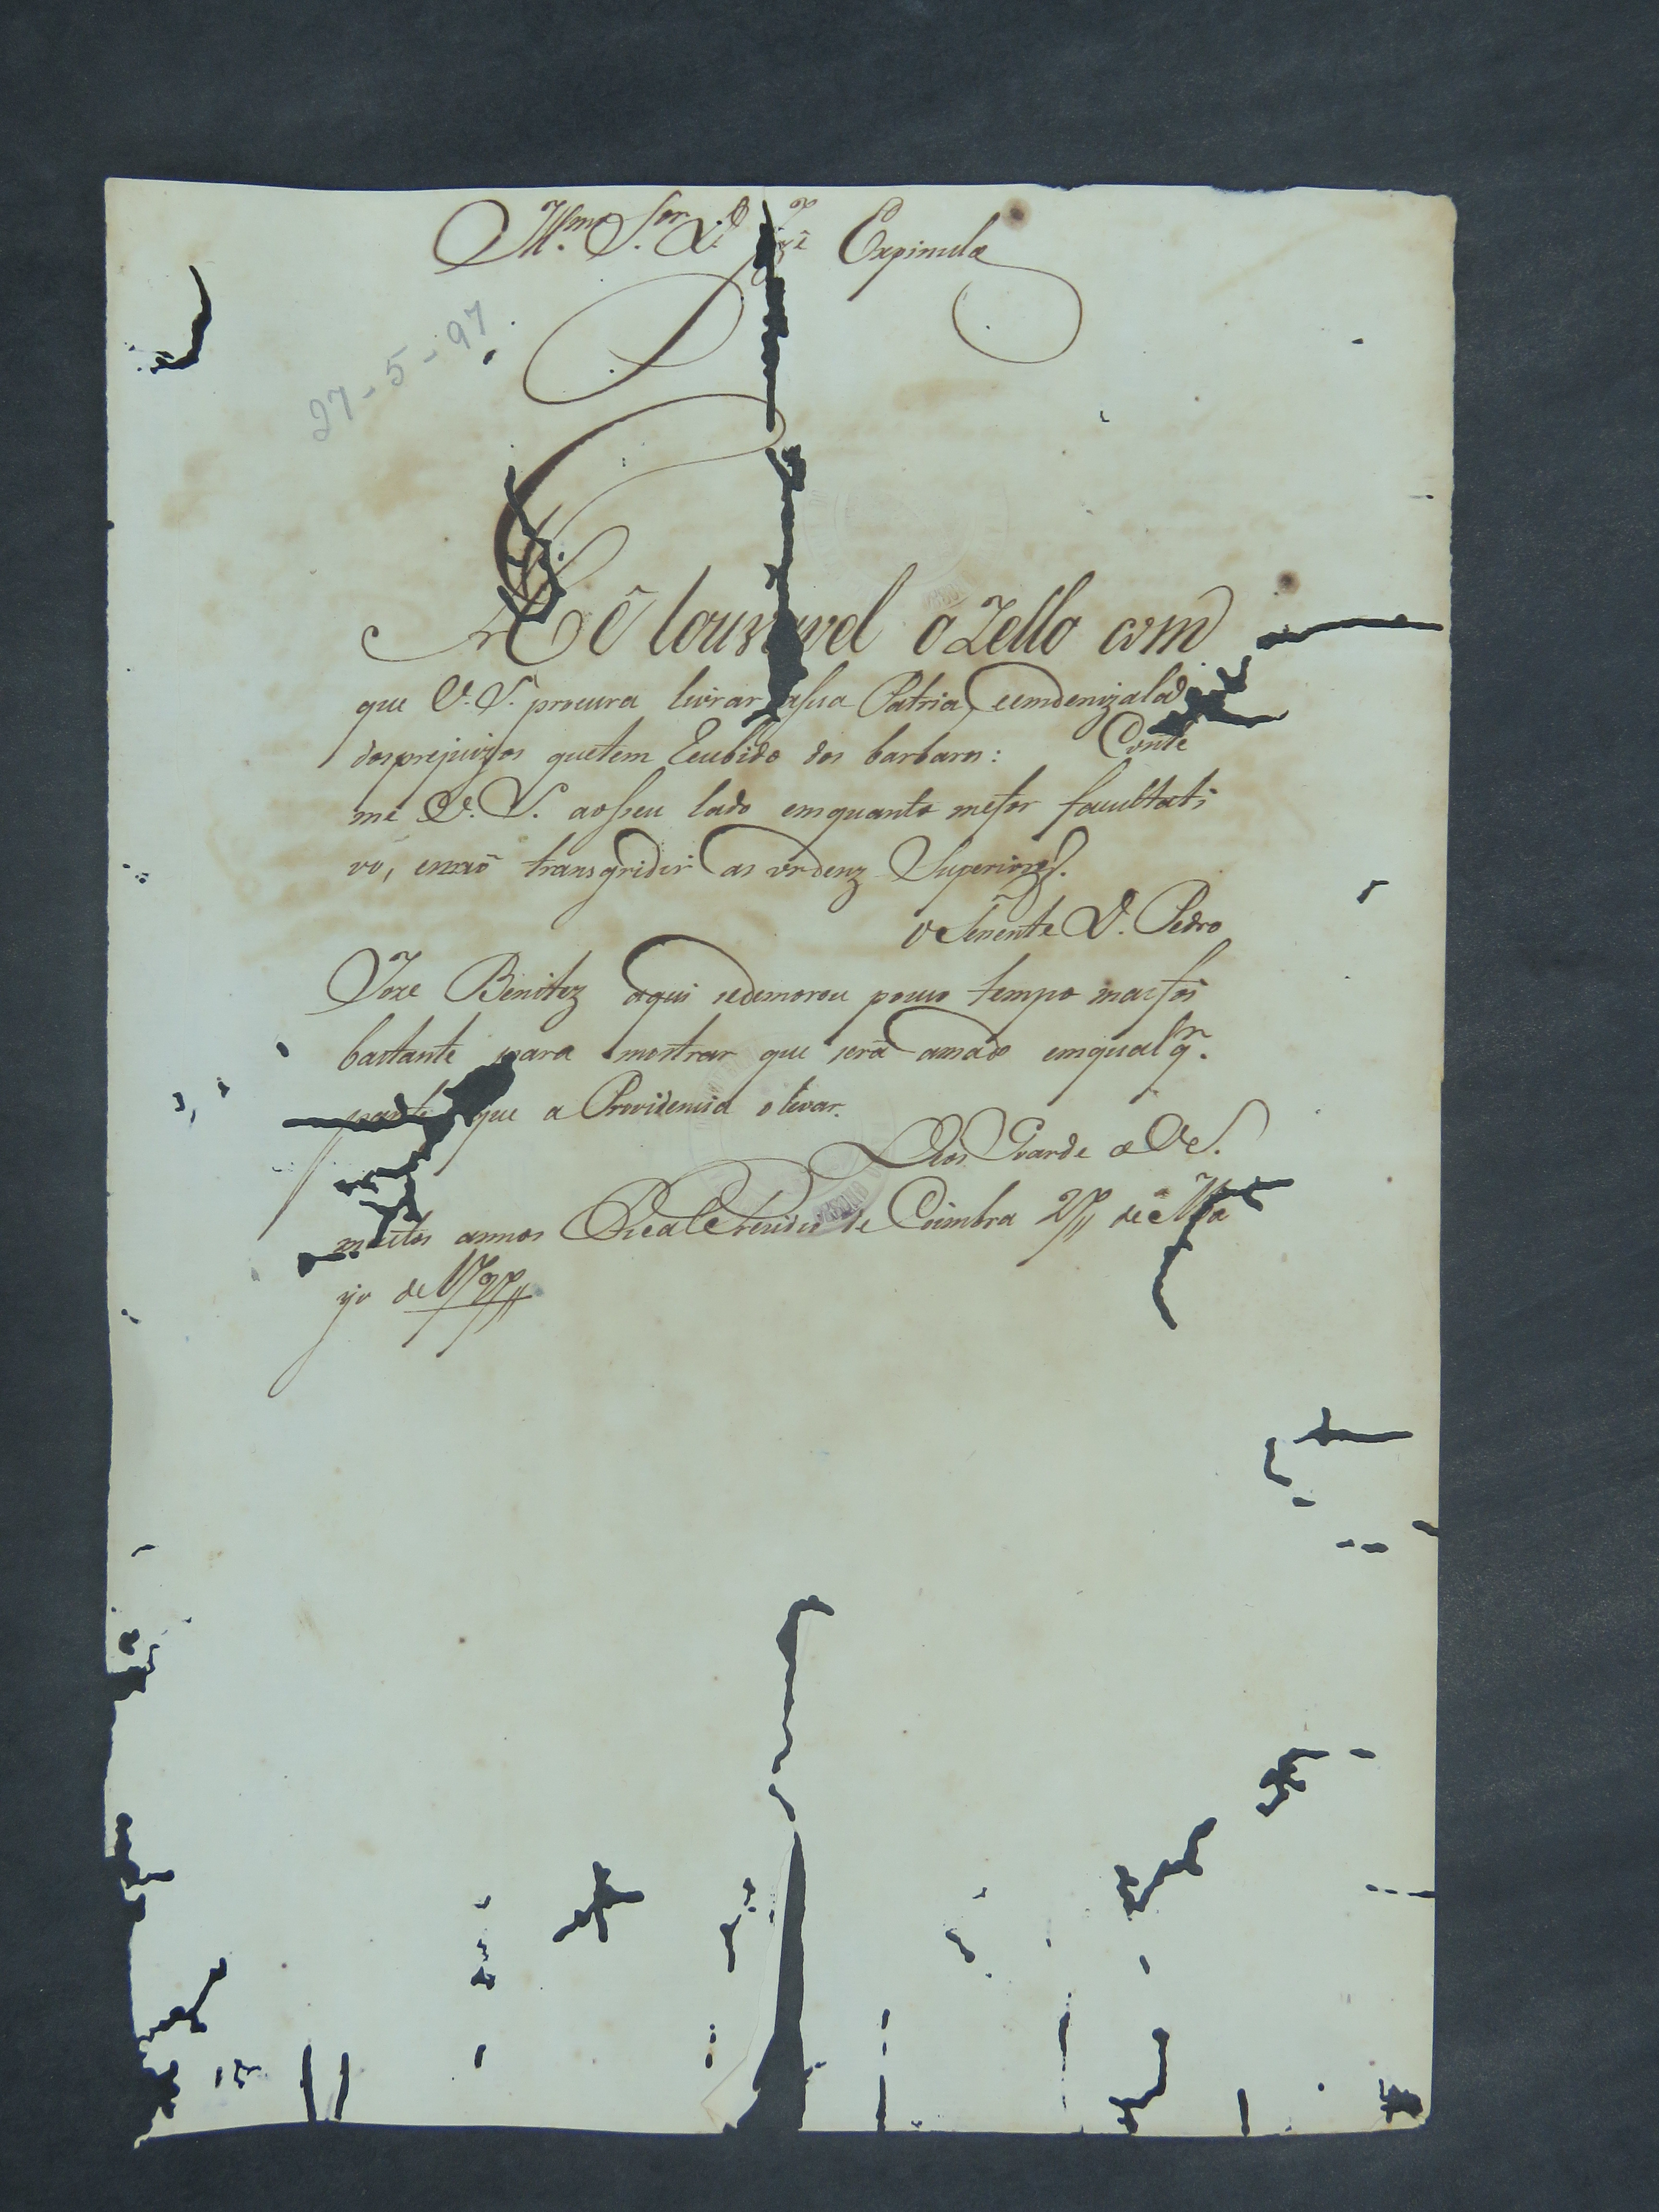 Ill.mo S.or D. Jozê Expindola
27-5-97
Hê louzavel o Zello com
que V. S. procura livrar asua Patria, eemdenizalad
dosprejuizos quetem Recebido dos barbaros: Conte
me V. S. aosseu lado emquanto mefor facultati
vo, enaõ transgridir as ordenz Superiores.
O Tenente D. Pedro
Joze Benitez aqui sedemorou pouco tempo mas foi
bastante para mostrar que será amado emqualq.r
parte que a Providencia o levar.
Deos Guarde a V. S.
muitos annos Real Prezidio de Coimbra 27 de Ma
yo de 1797